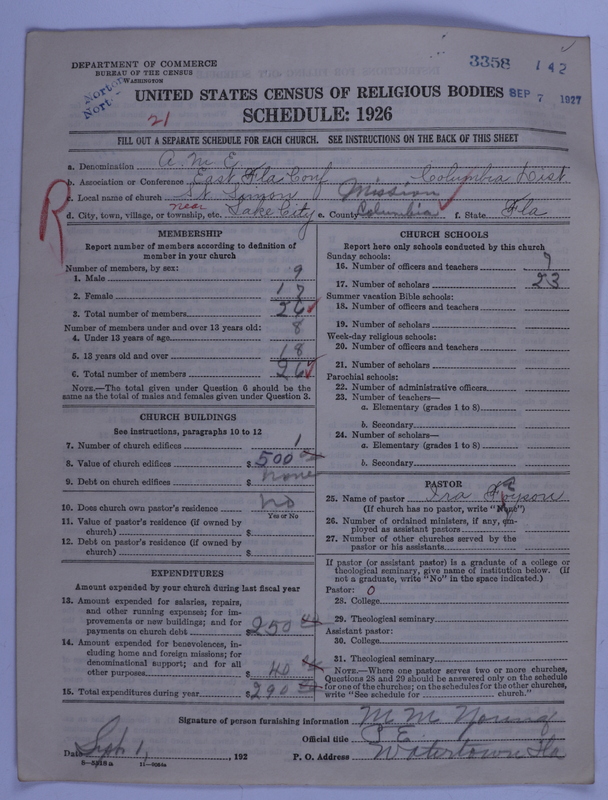 DEPARTMENT OF COMMERCE
BUREAU OF THE CENSUS
WASHINGTON
3358 142
SEP 7 1927
UNITED STATES CENSUS OF RELIGIOUS BODIES
21
SCHEDULE: 1926
FILL OUT A SEPARATE SCHEDULE FOR EACH CHURCH. SEE INSTRUCTIONS ON THE BACK OF THIS SHEET
a. Denomination A. M. E.
b. Association or Conference East Fla Conf Columbia Dist
c. Local name of church St. Simon Mission
d. City, town, village, or township, etc. near Lake City e. County Columbia f. State Fla
R
MEMBERSHIP
Report number of members according to definition of member in your church
Number of members, by sex:
1. Male 9
2. Female 17
3. Total number of members 26
Number of members under and over 13 years old:
4. Under 13 years of age 8
5. 13 years old and over 18
6. Total number of members 26
NOTE.—The total given under Question 6 should be the same as the total of males and females given under Question 3.
CHURCH BUILDINGS
See instructions, paragraphs 10 to 12
7. Number of church edifices 1
8. Value of church edifices $ 500
9. Debt on church edifices $ none
10. Does church own pastor's residence? no
Yes or No
11. Value of pastor's residence (if owned by church) $
12. Debt on pastor's residence (if owned by church) $
EXPENDITURES
Amount expended by your church during last fiscal year
13. Amount expended for salaries, repairs, and other running expenses; for improvements or new buildings; and for payments on church debt $ 250
14. Amount expended for benevolences, including home and foreign missions; for denominational support; and for all other purposes $ 40
15. Total expenditures during year $ 290
CHURCH SCHOOLS
Report here only schools conducted by this church
Sunday schools:
16. Number of officers and teachers 7
17. Number of scholars 23
Summer vacation Bible schools:
18. Number of officers and teachers
19. Number of scholars
Week-day religious schools:
20. Number of officers and teachers
21. Number of scholars
Parochial schools:
22. Number of administrative officers
23. Number of teachers—
a. Elementary (grades 1 to 8)
b. Secondary
24. Number of scholars—
a. Elementary (grades 1 to 8)
b. Secondary
PASTOR
25. Name of pastor Ira
(If church has no pastor, write "None")
26. Number of ordained ministers, if any, employed as assistant pastors
27. Number of other churches served by the pastor or his assistants
If pastor (or assistant pastor) is a graduate of a college or theological seminary, give name of institution below. (If not a graduate, write "No" in the space indicated.)
Pastor: 0
28. College
29. Theological seminary
Assistant pastor:
30. College
31. Theological seminary
NOTE.—Where one pastor serves two or more churches, Questions 28 and 29 should be answered only on the schedule for one of the churches; on the schedules for the other churches, write "See schedule for church."
Signature of person furnishing information M. M. Young
Official title P. E.
Date Sept 1, , 192 P. O. Address Watertown Fla